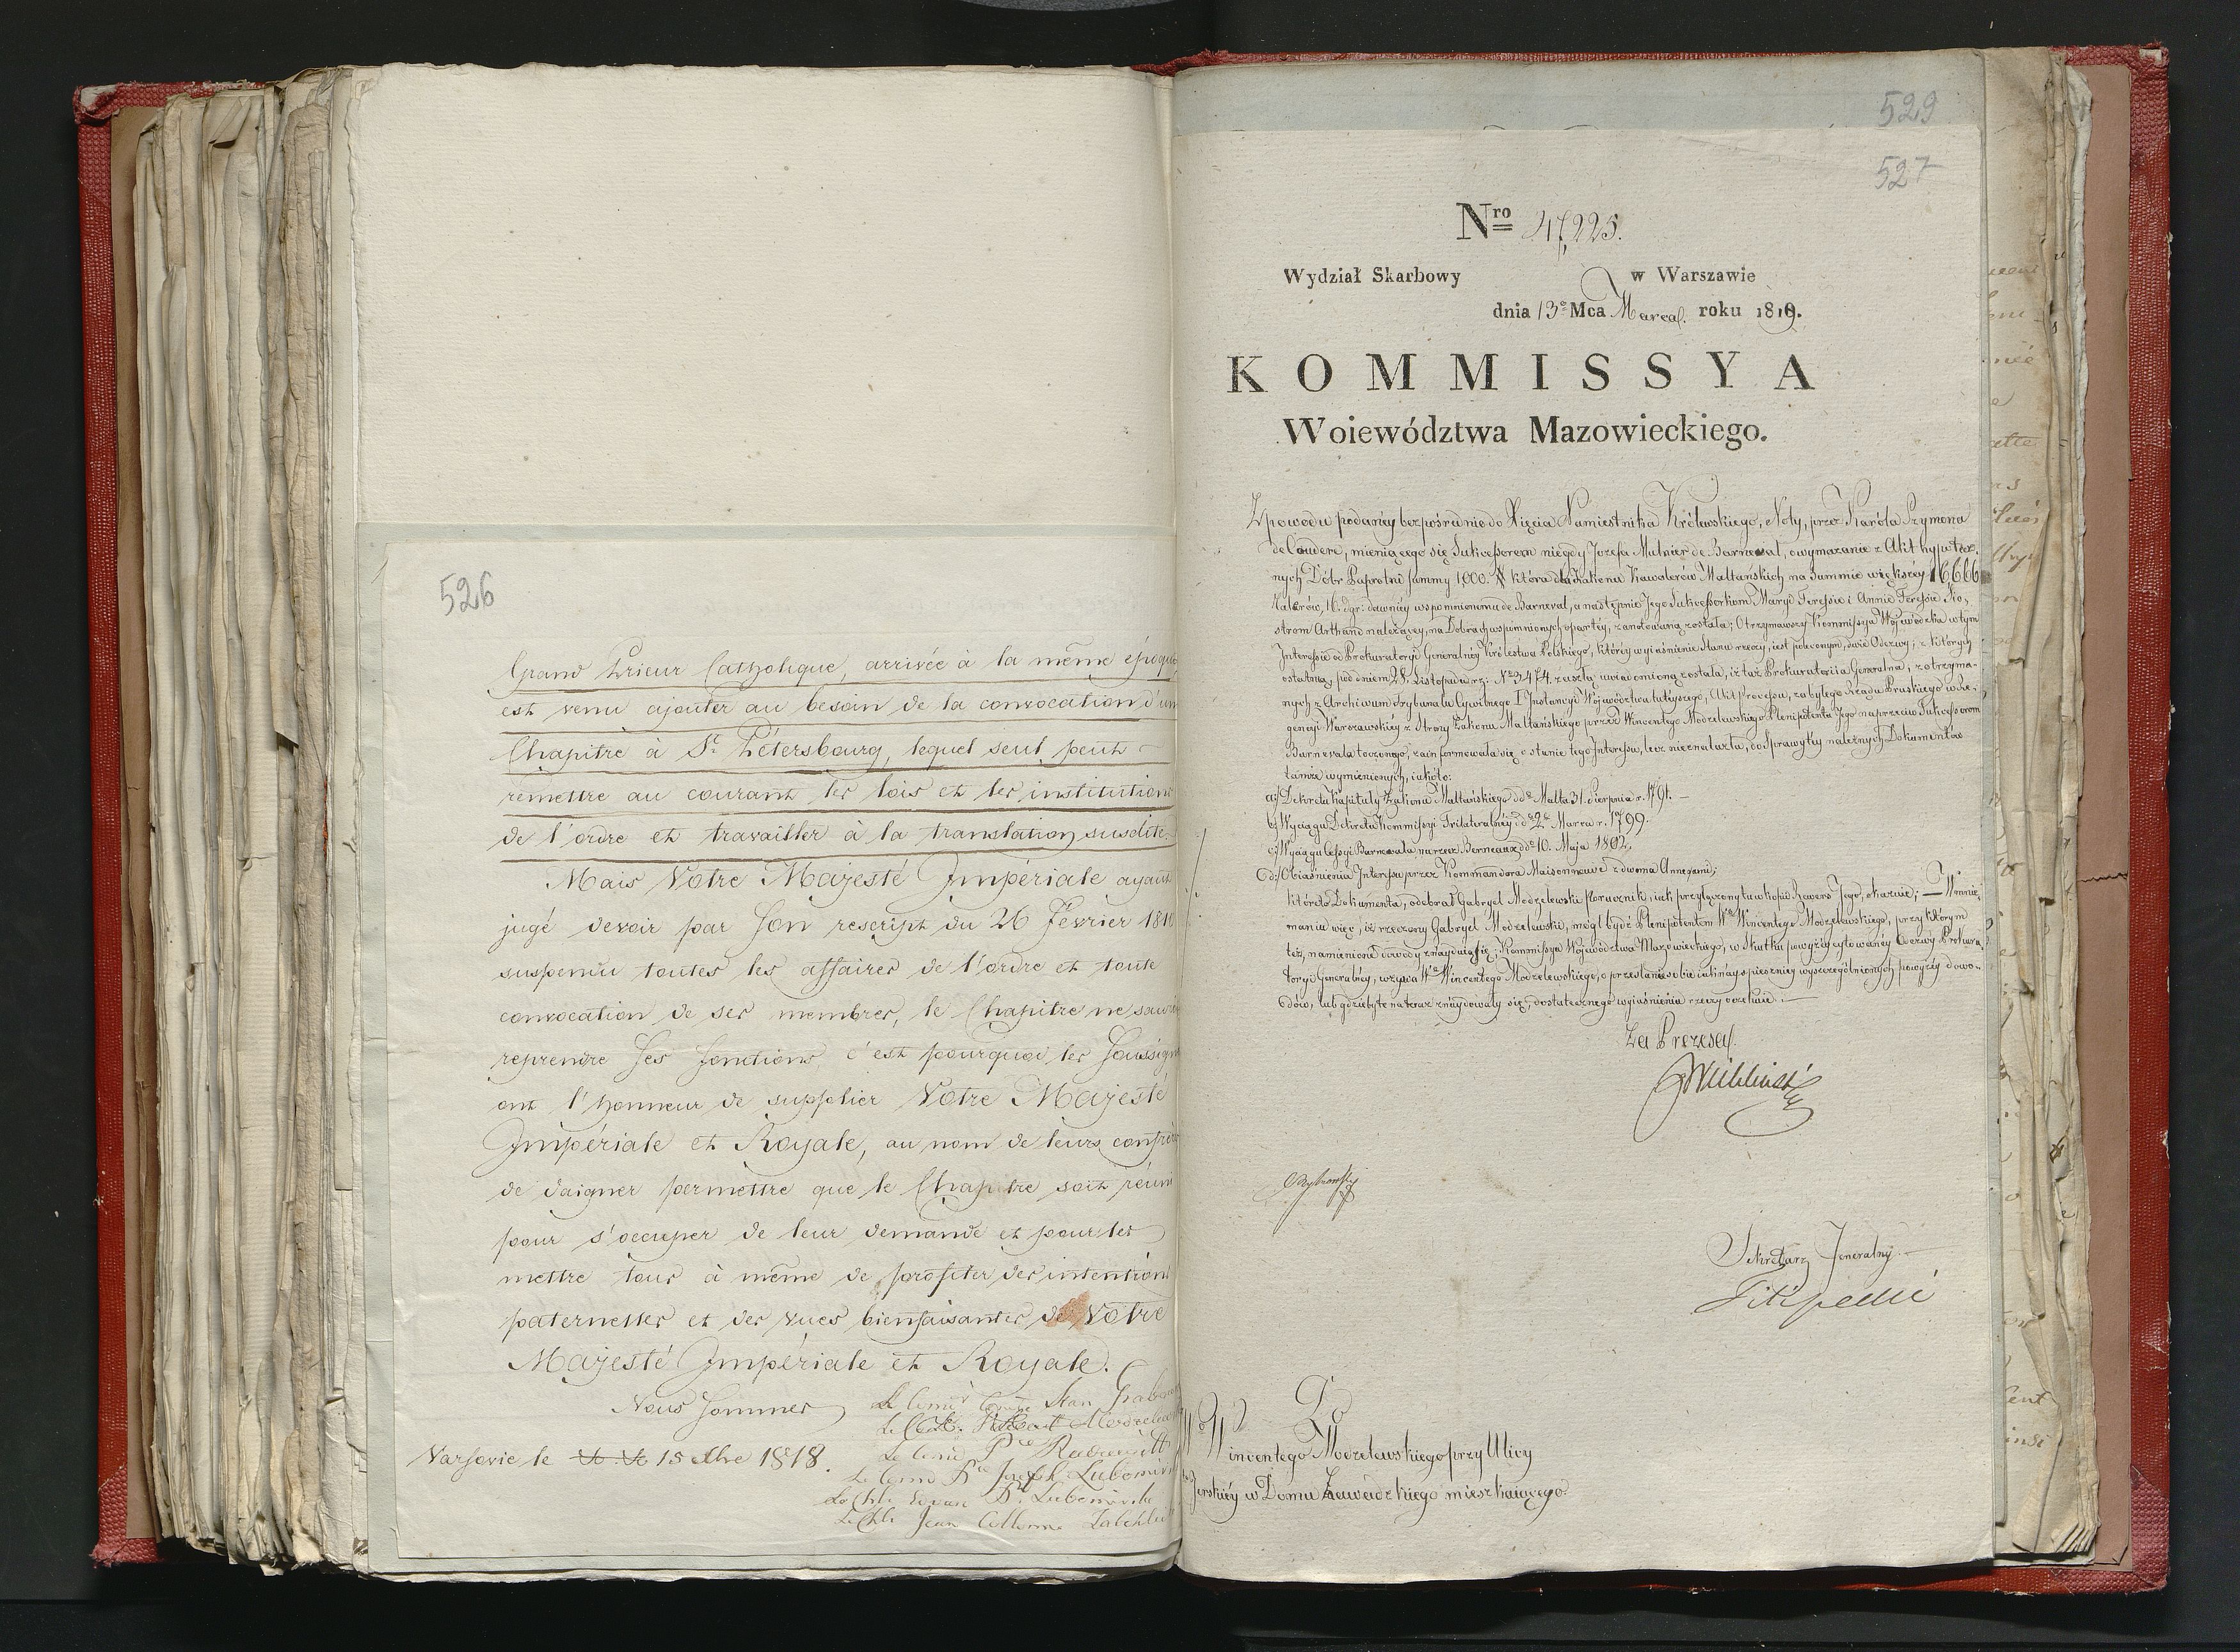 526
Grand Prieur Catholique, arrivée à la même époque
est venu ajouter au besoin de la convocation d'un
Chapitre à St. Pétersbourg, lequel seul peut
remettre au courant les lois et les institutions
de l'ordre et travailler à la translation susdite.
Mais Votre Majesté Impériale ayant
jugé devoir par Son rescript du 26 Février 1810
suspendu toutes les affaires de l'ordre et toute
convocation de ses membres, le Chapitre ne saurait
reprendre Ses fonctions, c'est pourquoi les Soussignés
ont l'honneur de supplier Votre Majesté
Impériale et Royale, au nom de leurs confrères
de daigner permettre que le Chapitre soit réuni
pour s'occuper de leur demande et pour les
mettre tous à même de profiter des intentions
paternelles et des vues bienfaisantes de Votre
Majesté Impériale et Royale.
Nous Sommes
Le Comd Comte Stan Grabow
Le Modzelew
Varsovie le 15 1818.
Le Comd Pce Radziwill
Le Comd Pce Joseph Lubomirs
Le Chlr Edouard Pce Lubomirski
Le Chlr Jean
529
527
Nro 47,225.
Wydział Skarbowy w Warszawie
dnia 13o Mca Marca roku 1819.
KOMMISSYA
Woiewództwa Mazowieckiego.
Z powodu podanéy bezpośrednio do Xięcia Namiestnika Królewskiego, Noty, przez Karóla Szymona
de Caudere, mieniącego się Sukcessorem niegdy Józefa Mulnier de Barneval, o wymazanie z Akt hypotecz-
nych Dóbr Paprotni summy 1,000. # która dla Zakonu Kawalerów Maltańskich na Summie większéy 16,666
Talarów, 16. dgr: dawniéy wspomnionemu de Barneval, a następnie Jego Sukcessorkom Maryi Teressie i Annie Teressie Sio-
strom Arthand należącey, na Dobrach wspomnionych opartéy, zanotowaną została; Otrzymawszy Kommissya Wojewódzka w tym
Interessie od Prokuratoryi Generalnéy Królestwa Polskiego, któréy wyiaśnienie Stanu rzeczy, iest poleconym, dwie Odezwy; z których
ostatnią, pod dniem 28. Listopada r.z: No 3474. zaszłą uwiadomioną została, iż taż Prokuratoriia Generalna, z otrzyma-
nych z Archiwum Trybunału Cywilnego I Instancyi Województwa tutéyszego, Akt Processu, za byłego Rządu Pruskiego w Re-
gencyi Warszawskiéy z Strony Zakonu Maltańskiego przez Wincentego Modzelewskiego Plenipotenta Jego naprzeciw Sukcessorom
Barnevala toczonego, zainformowała się o stanie tego Interessu, lecz nieznalazła, do Sprawy tey należnych Dokumentów
tamże wymienionych, iakoto:
a/ Dekretu Kapituły Zakonu Maltańskiego ddo Malta 31. Sierpnia r. 1791.
b/ Wyciągu Dekretu Kommissyi Trilateralnéy ddo 2o Marca r. 1799.
c/ Wyciągu Cessyi Barnevala na rzecz Berneaux ddo 10. Maja 1802.
d/ Obiaśnienia Interessu przez Kommandora Maisonneuve z dwoma Annexami;
któreto Dokumenta, odebrał Gabryel Modzelewski Porucznik, iak przyłączony tu w kopii Rewers Jego, okazuie; — W mnie-
maniu więc, iż rzeczony Gabryel Modzelewski, mógł bydź Plenipotentem Wo Wincentego Modzelewskiego, przy którym
téż, namienione dowody znaydują się; Kommissya Województwa Mazowieckiego, w Skutku powyżéy cytowanéy Odezwy Prokura-
toryi Generalnéy, wzywa Wo Wincentego Modzelewskiego, o przesłanie sobie iak nayspieszniéy wyszczególnionych powyżéy dowo-
dów, lub gdzieby te na teraz znaydowały się, dostatecznego wyiaśnienia rzeczy oczekuie.
Za Prezesa
Sekretarz Jeneralny
Filipecki
Do
Wo Wincentego Modzelewskiego przy Ulicy
w Domu Zawadzkiego mieszkaiącego